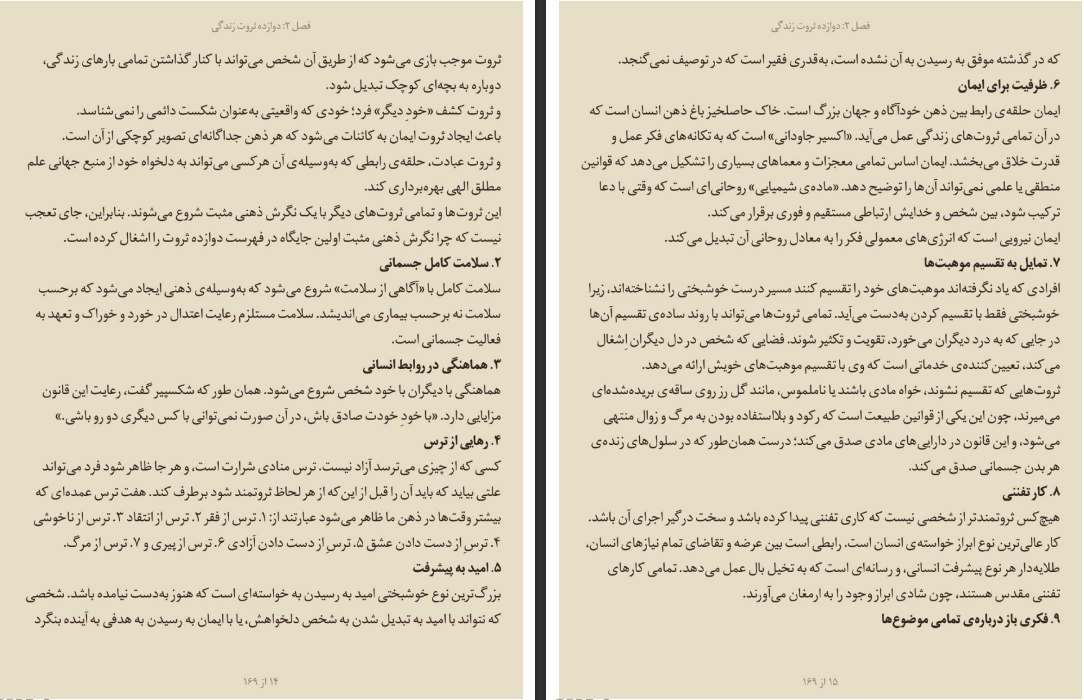 فصل ۲: دوازده ثروت زندگی
ثروت موجب بازی می‌شود که از طریق آن شخص می‌تواند با کنار گذاشتن تمامی بارهای زندگی،
دوباره به بچه‌ای کوچک تبدیل شود.
و ثروت کشف «خودِ دیگر» فرد؛ خودی که واقعیتی به‌عنوان شکست دائمی را نمی‌شناسد.
باعث ایجاد ثروت ایمان به کائنات می‌شود که هر ذهن جداگانه‌ای تصویر کوچکی از آن است.
و ثروت عبادت، حلقه‌ی رابطی که به‌وسیله‌ی آن هرکسی می‌تواند به دلخواه خود از منبع جهانی علم
مطلق الهی بهره‌برداری کند.
این ثروت‌ها و تمامی ثروت‌های دیگر با یک نگرش ذهنی مثبت شروع می‌شوند. بنابراین، جای تعجب
نیست که چرا نگرش ذهنی مثبت اولین جایگاه در فهرست دوازده ثروت را اشغال کرده است.
۲. سلامت کامل جسمانی
سلامت کامل با «آگاهی از سلامت» شروع می‌شود که به‌وسیله‌ی ذهنی ایجاد می‌شود که برحسب
سلامت نه برحسب بیماری می‌اندیشد. سلامت مستلزم رعایت اعتدال در خورد و خوراک و تعهد به
فعالیت جسمانی است.
۳. هماهنگی در روابط انسانی
هماهنگی با دیگران با خود شخص شروع می‌شود. همان طور که شکسپیر گفت، رعایت این قانون
مزایایی دارد. «با خودِ خودت صادق باش، در آن صورت نمی‌توانی با کس دیگری دو رو باشی.»
۴. رهایی از ترس
کسی که از چیزی می‌ترسد آزاد نیست. ترس منادی شرارت است، و هر جا ظاهر شود فرد می‌تواند
علتی بیابد که باید آن را قبل از این‌که از هر لحاظ ثروتمند شود برطرف کند. هفت ترس عمده‌ای که
بیشتر وقت‌ها در ذهن ما ظاهر می‌شود عبارتند از: ۱. ترس از فقر ۲. ترس از انتقاد ۳. ترس از ناخوشی
۴. ترسِ از دست دادن عشق ۵. ترسِ از دست دادن آزادی ۶. ترس از پیری و ۷. ترس از مرگ.
۵. امید به پیشرفت
بزرگ‌ترین نوع خوشبختی امید به رسیدن به خواسته‌ای است که هنوز به‌دست نیامده باشد. شخصی
که نتواند با امید به تبدیل شدن به شخص دلخواهش، یا با ایمان به رسیدن به هدفی به آینده بنگرد
۱۴ از ۱۶۹
فصل ۲: دوازده ثروت زندگی
که در گذشته موفق به رسیدن به آن نشده است، به‌قدری فقیر است که در توصیف نمی‌گنجد.
۶. ظرفیت برای ایمان
ایمان حلقه‌ی رابط بین ذهن خودآگاه و جهان بزرگ است. خاک حاصلخیز باغ ذهن انسان است که
در آن تمامی ثروت‌های زندگی عمل می‌آید. «اکسیر جاودانی» است که به تکانه‌های فکر عمل و
قدرت خلاق می‌بخشد. ایمان اساس تمامی معجزات و معماهای بسیاری را تشکیل می‌دهد که قوانین
منطقی یا علمی نمی‌تواند آن‌ها را توضیح دهد. «ماده‌ی شیمیایی» روحانی‌ای است که وقتی با دعا
ترکیب شود، بین شخص و خدایش ارتباطی مستقیم و فوری برقرار می‌کند.
ایمان نیرویی است که انرژی‌های معمولی فکر را به معادل روحانی آن تبدیل می‌کند.
۷. تمایل به تقسیم موهبت‌ها
افرادی که یاد نگرفته‌اند موهبت‌های خود را تقسیم کنند مسیر درست خوشبختی را نشناخته‌اند، زیرا
خوشبختی فقط با تقسیم کردن به‌دست می‌آید. تمامی ثروت‌ها می‌تواند با روند ساده‌ی تقسیم آن‌ها
در جایی که به درد دیگران می‌خورد، تقویت و تکثیر شوند. فضایی که شخص در دل دیگران اِشغال
می‌کند، تعیین‌کننده‌ی خدماتی است که وی با تقسیم موهبت‌های خویش ارائه می‌دهد.
ثروت‌هایی که تقسیم نشوند، خواه مادی باشند یا ناملموس، مانند گل رز روی ساقه‌ی بریده‌شده‌ای
می‌میرند، چون این یکی از قوانین طبیعت است که رکود و بلااستفاده بودن به مرگ و زوال منتهی
می‌شود، و این قانون در دارایی‌های مادی صدق می‌کند؛ درست همان‌طور که در سلول‌های زنده‌ی
هر بدن جسمانی صدق می‌کند.
۸. کار تفننی
هیچ‌کس ثروتمندتر از شخصی نیست که کاری تفننی پیدا کرده باشد و سخت درگیر اجرای آن باشد.
کار عالی‌ترین نوع ابراز خواسته‌ی انسان است. رابطی است بین عرضه و تقاضای تمام نیازهای انسان،
طلایه‌دار هر نوع پیشرفت انسانی، و رسانه‌ای است که به تخیل بال عمل می‌دهد. تمامی کارهای
تفننی مقدس هستند، چون شادی ابراز وجود را به ارمغان می‌آورند.
۹. فکری باز درباره‌ی تمامی موضوع‌ها
۱۵ از ۱۶۹